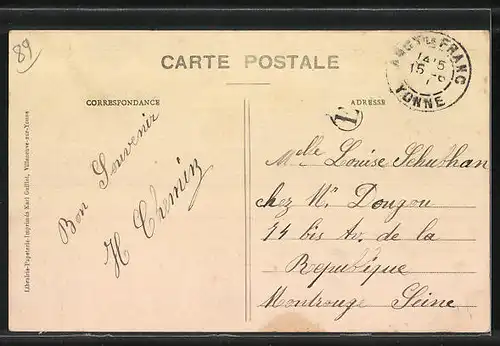 89
CARTE POSTALE
CORRESPONDANCE
ADRESSE
Bon Souvenir
H Chemin
Mlle Louise Schuthan
chez Mr Dougou
74 bis Av. de la
Republique
Montrouge Seine
FRANC
YONNE
Librairie-Papeterie-Imprimés Karl Guillot, Villeneuve-sur-Yonne